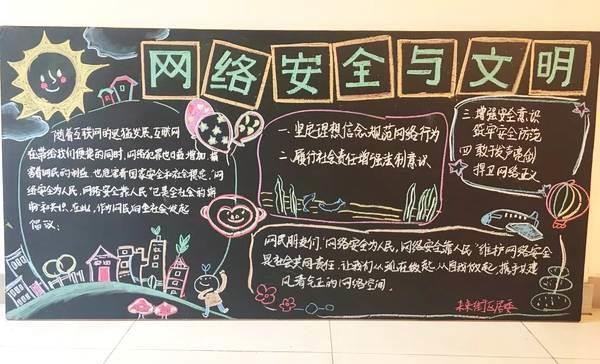 网络安全与文明
随着互联网的迅猛发展,互联网
在带给我们便捷的同时,网络犯罪也日益增加,损
害着网民的利益,也危害着国家安全和社会稳定,"网
络安全为人民,网络安全靠人民"已是全社会的
和共识,在此,作为网民向全社会发起
倡议:
一、坚定理想信念规范网络行为
二、履行社会责任增强法制意识
三 增强安全意识
筑牢安全防范
四 敢于发声亮剑
捍卫网络正义
网民朋友们,"网络安全为人民,网络安全靠人民"维护网络安全
是社会共同责任,让我们从现在做起,从自我做起,携手共建
风清气正的网络空间。